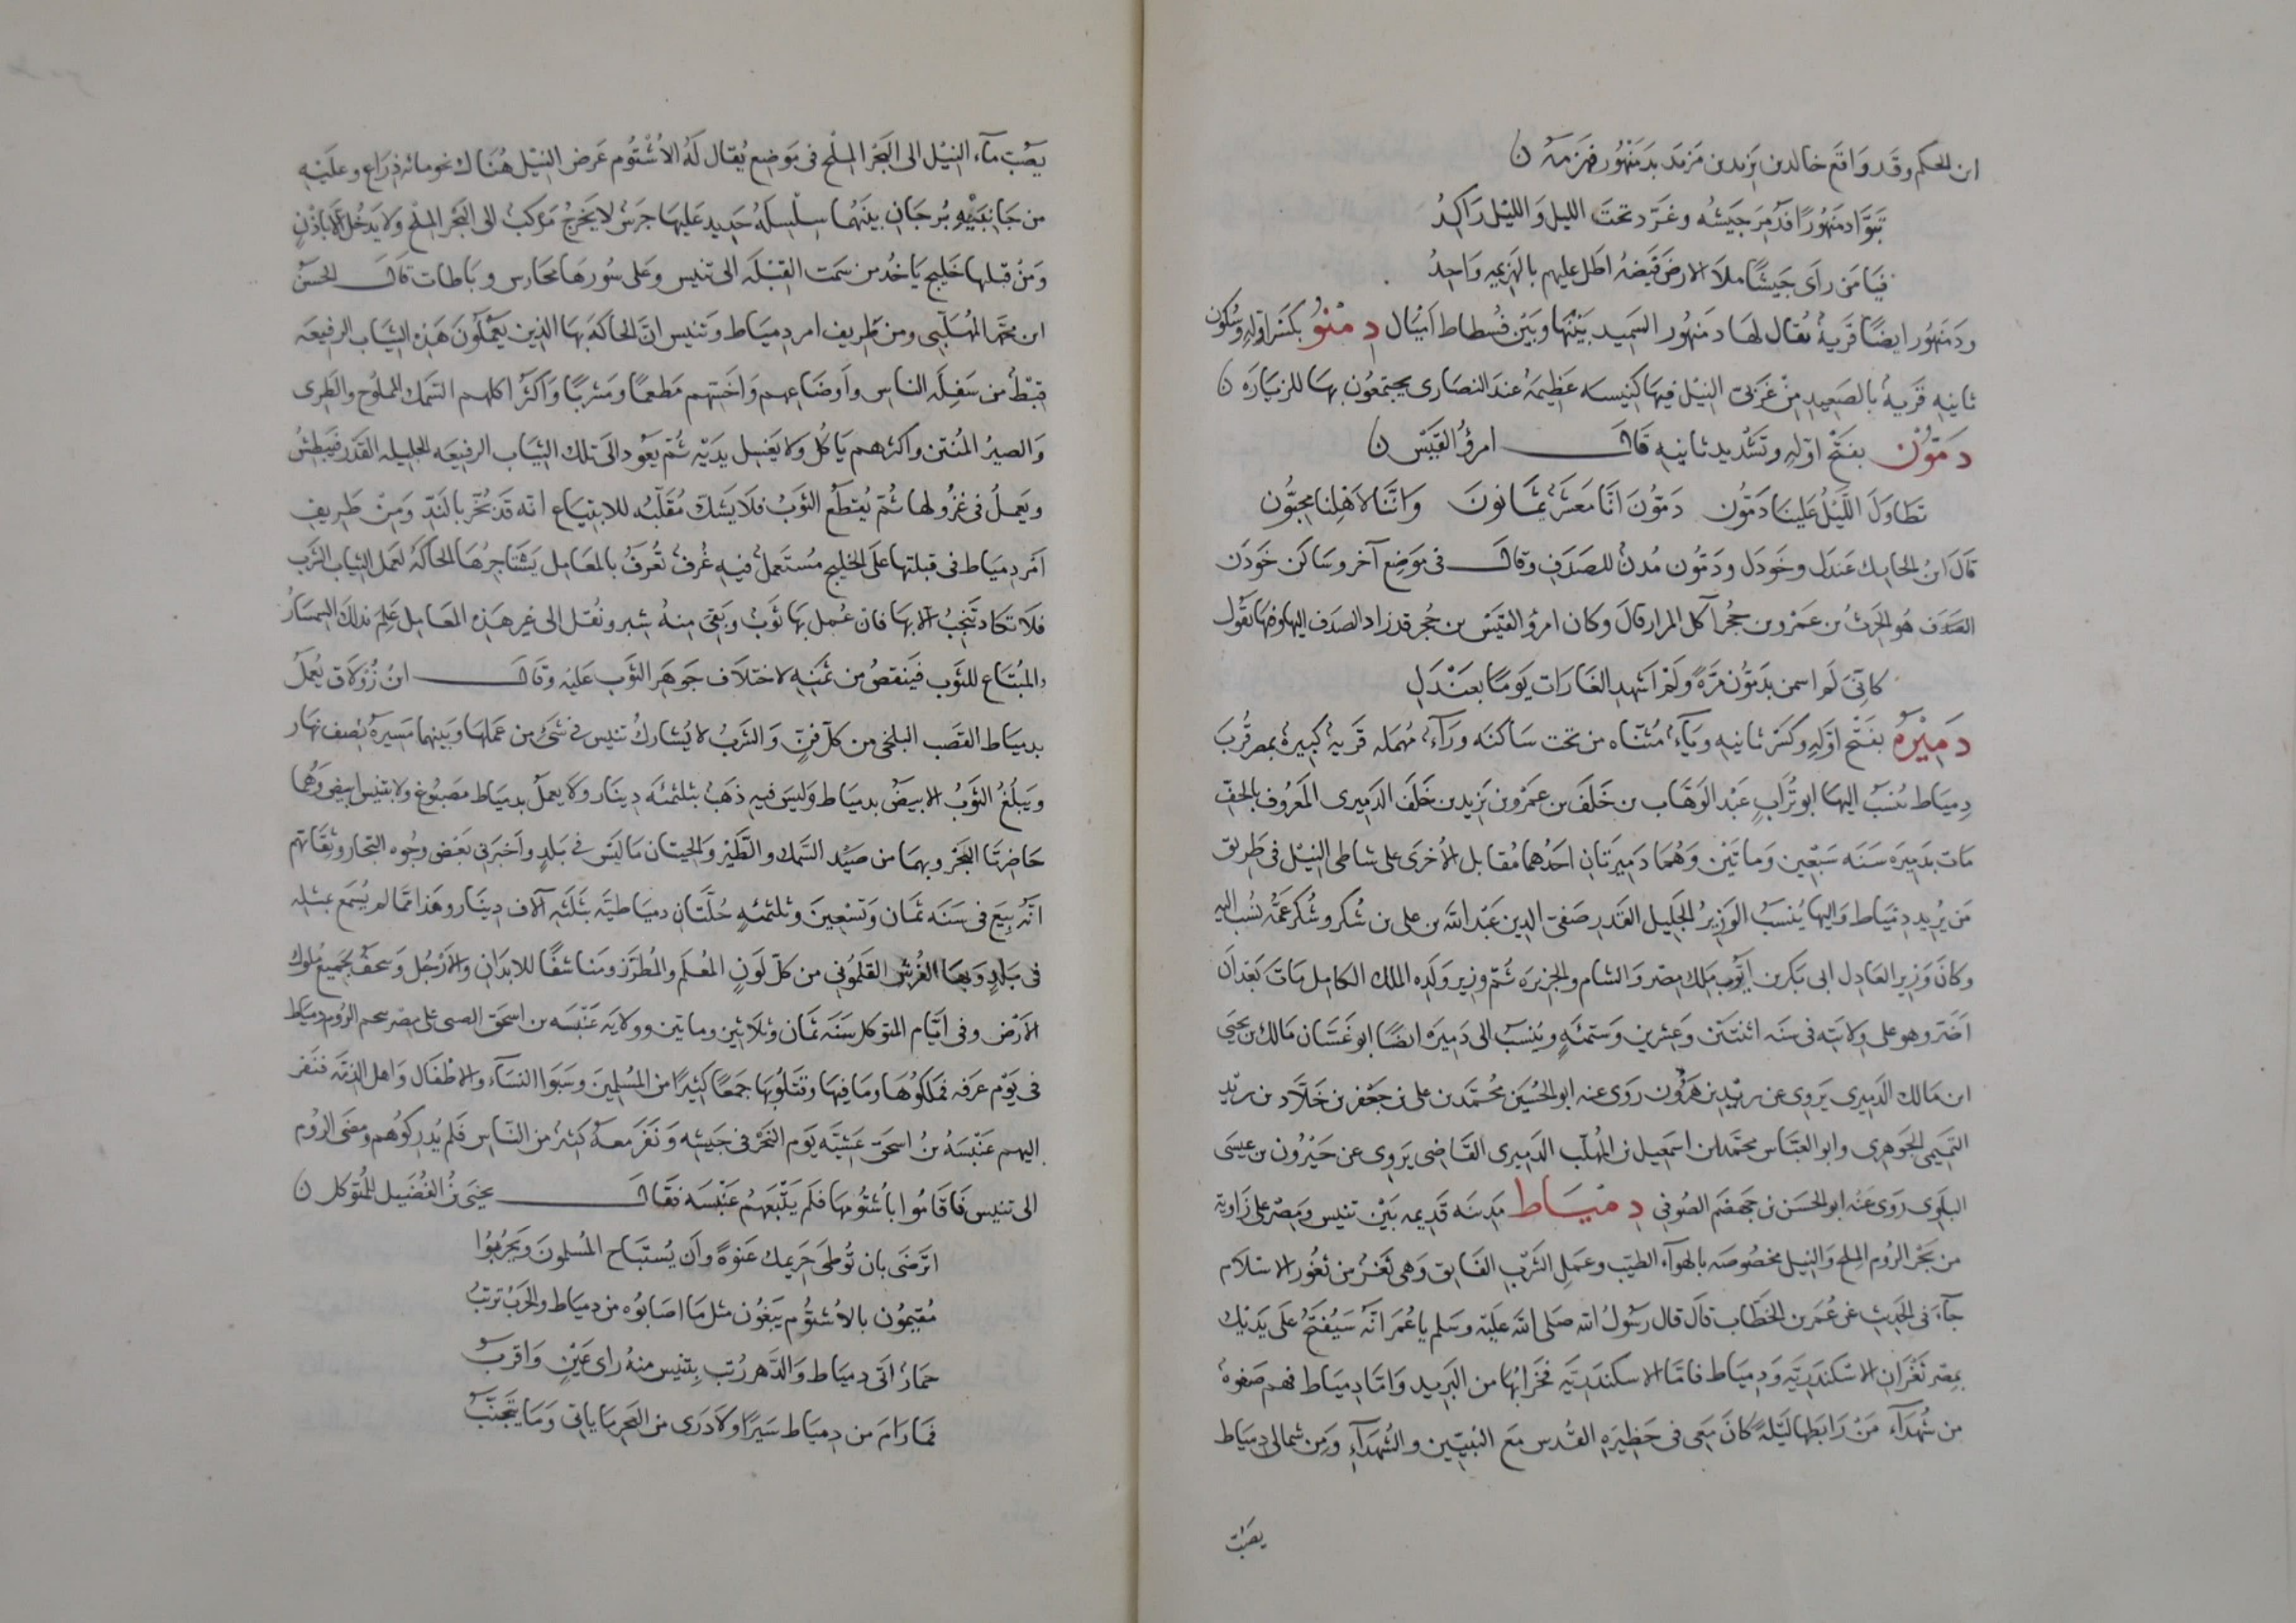 ابن الحكم وقد واقع خالد بن يزيد بن مزيد بدمنهور فهزمه ن
تبوّا دمنهورًا فدُمِّر جيشه وعرّد تحت الليل والليل راكدُ
فيا من رأى جيشًا ملأ الارض فيضه اطل عليهم بالهزيمه واحدُ
ودمنهور ايضًا قرية يُقال لها دمنهور السميد بينها وبين فسطاط اميال دمنُو بكسر اوله وسكون
ثانيه قرية بالصعيد من غربيّ النيل فيها كنيسه عظيمة عند النصارى يجتمعون بها للزيارة ن
دمّون بفتح اوله وتشديد ثانيه قال امرؤ القيس ن
تطاول الليل علينا دمّون دمّون انّا معشر يمانون واننا لاهلنا محبّون
قال ابن الحايك عندل وخودل ودمّون مُدنٌ للصدف وقال في موضع آخر وساكن خودن
الصدف هو الحرث بن عمرو بن حجر آكل المرار قال وكان امرؤ القيس بن حجر قد زار الصدف اليها وفيها يقول
كانّى لم اسمر بدمّون مرّةً ولم اشهد الغارات يومًا بعندل
دميرة بفتح اوله وكسر ثانيه وياءٌ مثنّاه من تحت ساكنه وراءٌ مهمله قريةٌ كبيرةٌ بمصر قُربَ
دمياط يُنسب اليها ابو تراب عبد الوهّاب بن خلف بن عمرو بن يزيد بن خلف الدميرى المعروف بالخفّ
مات بدميره سنه سبعين وماتين وهما دميرتان احدهما مقابل الاخرى على شاطى النيل فى طريق
من يُريد دمياط واليها يُنسب الوزير الجليل القدر صفىّ الدين عبد الله بن على بن شكر وشكر عمّه نُسب اليه
وكان وزير العادل ابى بكر بن ايّوب ملك مصر والشام والجزيره ثم وزير ولده الملك الكامل مات بعد ان
اضرّ وهو على ولايته فى سنه اثنتين وعشرين وستمئةٍ ويُنسب الى دميره ايضًا ابو غسّان مالك بن يحيى
ابن مالك الدميرى يروى عن يزيد بن هرون روى عنه ابو الحسين محمّد بن على بن جعفر بن خلّاد بن يزيد
التميمى الجوهرى وابو العبّاس محمّد بن اسمعيل بن المهلّب الدميرى القاضى يروى عن جيرون بن عيسى
البلوى روى عنه ابو الحسن بن جهضم الصوفى دمياط مدينه قديمه بين تنيس ومصر على زاويه
من بحر الروم الملح والنيل مخصُوصه بالهوآء الطيّب وعمل الشرب الفايق وهى ثغر من ثغور الاسلام
جآءَ فى الحديث عن عُمر بن الخطّاب قال قال رسول الله صلى الله عليه وسلم يا عُمر انّه سيُفتح على يديك
بمصر ثغران الاسكندريّه ودمياط فامّا الاسكندريّه فخرابُها من البربر وامّا دمياط فهم صفوةٌ
من شهدآء من رابطها ليلةً كان معى فى حظيره القُدس مع النبيّين والشهدآء ومن شمالى دمياط
يصبّ
يصبّ مآء النيل الى البحر الملح فى موضع يُقال له الاُشتُوم عرض النيل هُناك نحو مائه ذراع وعليه
من جانبيه برجان بينهما سلسلة حديد عليها جرس لا يخرجُ مركبٌ الى البحر الملح ولا يدخل الا باذن
ومن قبلها خليج ياخُذ من سمت القبله الى تنيس وعلى سُورها محارس ورباطات قال الحسن
ابن محمّد المهلّبى ومن طريف امر دمياط وتنيس انّ الحاكة بها الذين يعملون هذه الثياب الرفيعه
قبطٌ من سفله الناس واوضاعهم واخسّهم مطعمًا ومشربًا واكثر اكلهم السمك المملُوح والطرى
والصير المُنتن واكثرهم ياكُل ولا يغسل يديه ثم يعود الى تلك الثياب الرفيعه الجليله القدر فيبطش
ويعملُ فى غزُولها ثم يُقطع الثوبُ فلا يشكّ مُقلّبه للابتياع انه قد بُخّر بالندّ ومن طريف
امر دمياط فى قبلتها على الخليج مُستعملٌ فيه غُرفٌ تُعرف بالمعامل يستاجرُها الحاكة لعمل الثياب الشرب
فلا تكاد تنجبُ الا بها فان عُمل بها ثوبٌ وبقى منهُ شبر ونُقل الى غير هذه المعامل علِم بذلك السمسارُ
المُبتاع للثوب فينقصُ من ثمنه لاختلاف جوهر الثوب عليه وقال ابن زولاق يُعملُ
بدمياط القصب البلخى من كل فنّ والشربُ لا يُشاركُ تنيس فى شئ من عملها وبينهما مسيرة نصف نهار
ويبلغُ الثوبُ الابيضُ بدمياط وليس فيه ذهبٌ بثلثمئة دينار ولا يعمل بدمياط مصبُوغ ولا بتنيس ابيض وهما
حاضرتا البحر وبهما من صيد السمك والطير والحيتان ما ليس فى بلدٍ واخبرنى بعض وجُوه التجار وثقاتهم
انّه بيع فى سنه ثمان وتسعين وثلثمئةٍ حُلّتان دمياطيّه بثلثه آلاف دينار وهذا ممّا لم يُسمع بمثله
فى بلدٍ وبها الفُرش القلمُونى من كلّ لونٍ المُعلم والمُطرّز ومناشفًا للابدان والارجُل وتحف بجميع مُلوك
الارض وفى ايّام المتوكل سنه ثمان وثلاثين وماتين وولايه عنبسه بن اسحق الضبى على مصر هجم الروم دمياط
فى يوم عرفه فملكُوها وما فيها وقتلُوا بها جمعًا كثيرًا من المُسلمين وسبوا النسآء والاطفال واهل الذمّه فنفر
اليهم عنبسهُ بنُ اسحق عشيّة يوم النحر فى جيشه ونفر معهُ كثيرٌ من النّاس فلم يُدركُوهم ومضى الرُوم
الى تنيس فاقامُوا باُشتُومها فلم يتّبعهُم عنبسه فقال يحيى بنُ الفُضَيل للمُتوكل ن
اترضى بان تُوطى حريمك عنوةً وان يُستباح المُسلمون ويحربُوا
مُقيمُون بالاُشتُوم يبغُون مثل ما اصابُوه من دمياط والحربُ ترتبُ
حمارٌ اتى دمياط والدّهر رُتب بتنيس منهُ راى عينٍ واقربُ
فما رام من دمياط سيرًا ولا درى من العجز ما ياتى وما يتجنّبُ